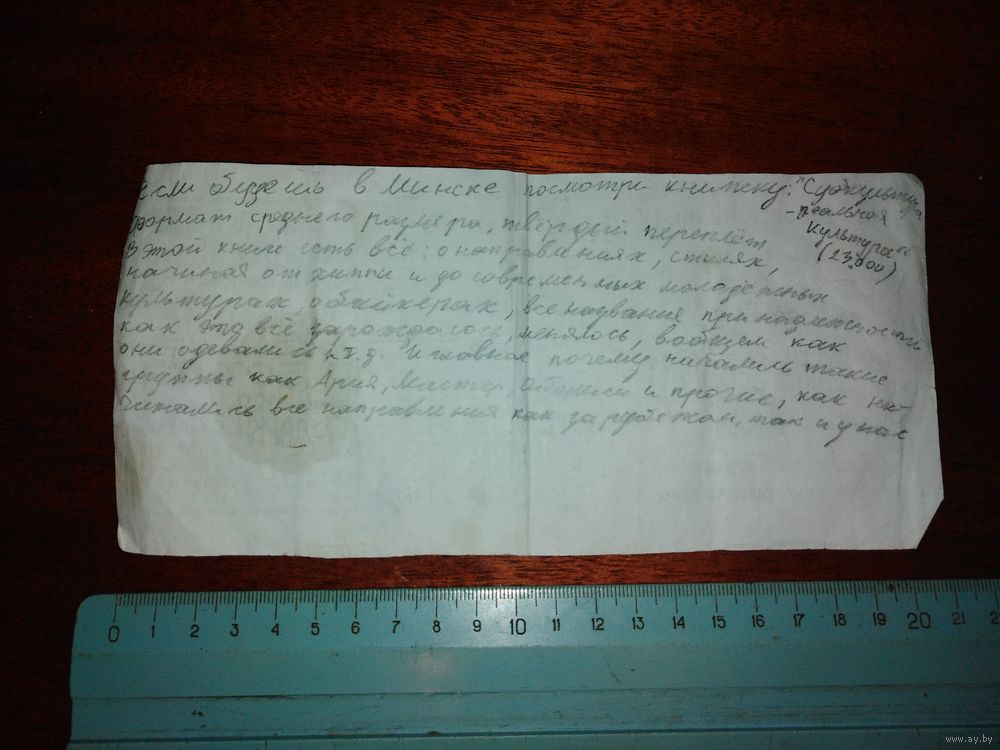 Если будешь в Минске посмотри книжку: "Субкультура
- реальная
культура"
(23.000)
формат среднего размера, твёрдый переплёт
В этой книге есть всё: о направлениях, стилях,
начиная от хиппи и до современных молодёжных
культурах, о байкерах, все название принадлежности
как это всё зарождалось, менялось, вообщем как
они одевались и т.д. И главное почему начались такие
группы как Ария, Мастер, и прочие, как на-
чинались все направления как за рубежом, так и у нас
0 1 2 3 4 5 6 7 8 9 10 11 12 13 14 15 16 17 18 19 20 21 2
www.ay.by